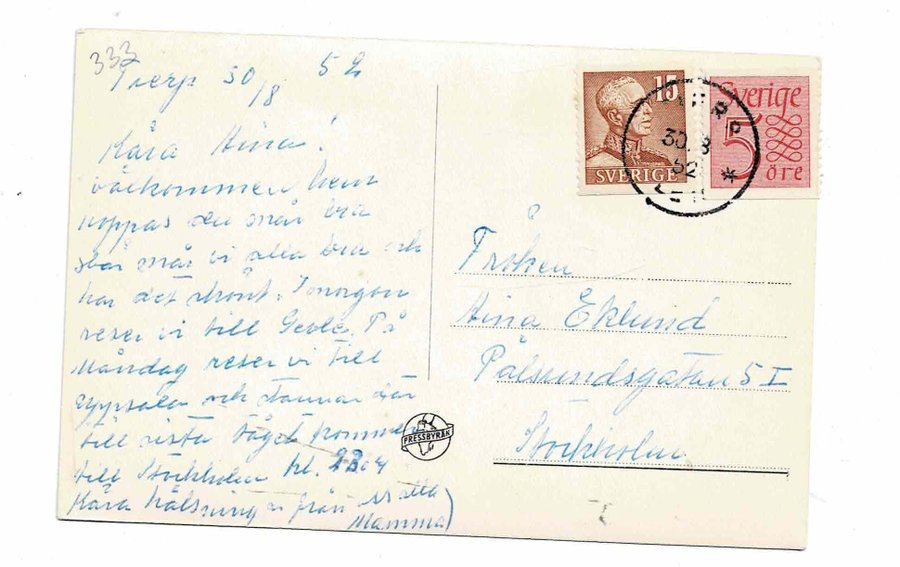 333
Tierp 30/8 52
Kära Aina!
välkommen hem
hoppas du mår bra
här mår vi alla bra och
har det skönt. I morgon
reser vi till Gevle. På
Måndag reser vi till
Uppsala och stannar där
till sista tåget kommer
till Stockholm kl.
Kära hälsningar från
Mamma
PRESSBYRÅN
15
SVERIGE
Sverige
5
öre
30.8
52
Fröken
Aina Eklund
Pålsundsgatan 5 I
Stockholm